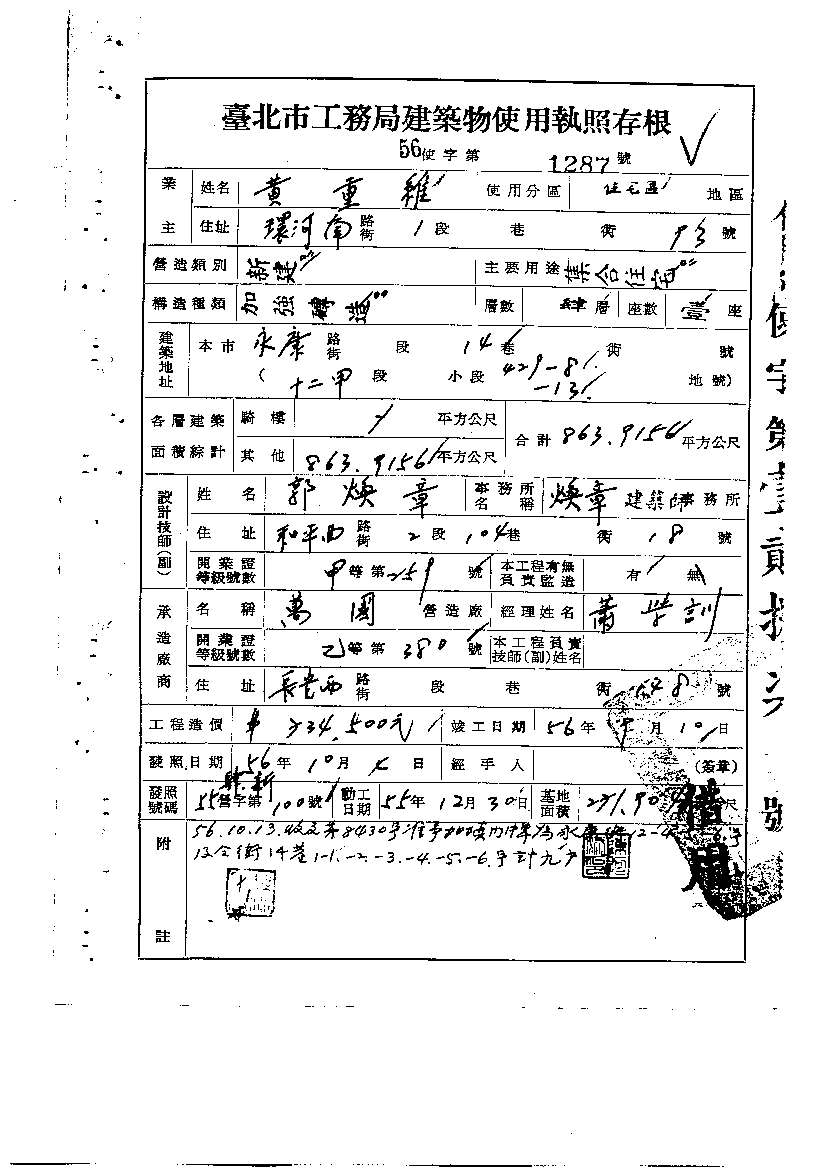 臺北市工務局建築物使用執照存根
56使字第 1287 號
業主 姓名 黃重雄 使用分區 住宅區 地區
住址 環河南 路街 1 段 巷 街 93 號
營造類別 新建 主要用途 集合住宅
構造種類 加強磚造 層數 肆層 座數 壹 座
建築地址 本市 永康 路街 段 14 巷 街 號
( 十二甲 段 小段 429-8 -13 地號)
各層建築面積綜計 騎樓 / 平方公尺 合計 863.9156 平方公尺
其他 863.9156 平方公尺
設計技師(副) 姓名 郭煥章 事務所名稱 煥章建築師事務所
住址 和平西 路街 2 段 104 巷 街 18 號
開業證等級號數 甲等第 259 號 本工程有無負責監造 有 無
承造廠商 名稱 萬國 營造廠 經理姓名 蕭學訓
開業證等級號數 乙等第 380 號 本工程員責技師(副)姓名
住址 長安西 路街 段 巷 街 48 號
工程造價 334,500元 竣工日期 56年 月 10 日
發照日期 56年 10月 日 經手人 (簽章)
發照號碼 55營字第 100號 動工日期 55年 12月 30日 基地面積 271.90 尺
附註 56.10.13.收文第8430號准予加填門牌為永康街12-4
及仝街14巷1-1.-2.-3.-4.-5.-6.号計九戶
借用
使字第壹貳捌 號